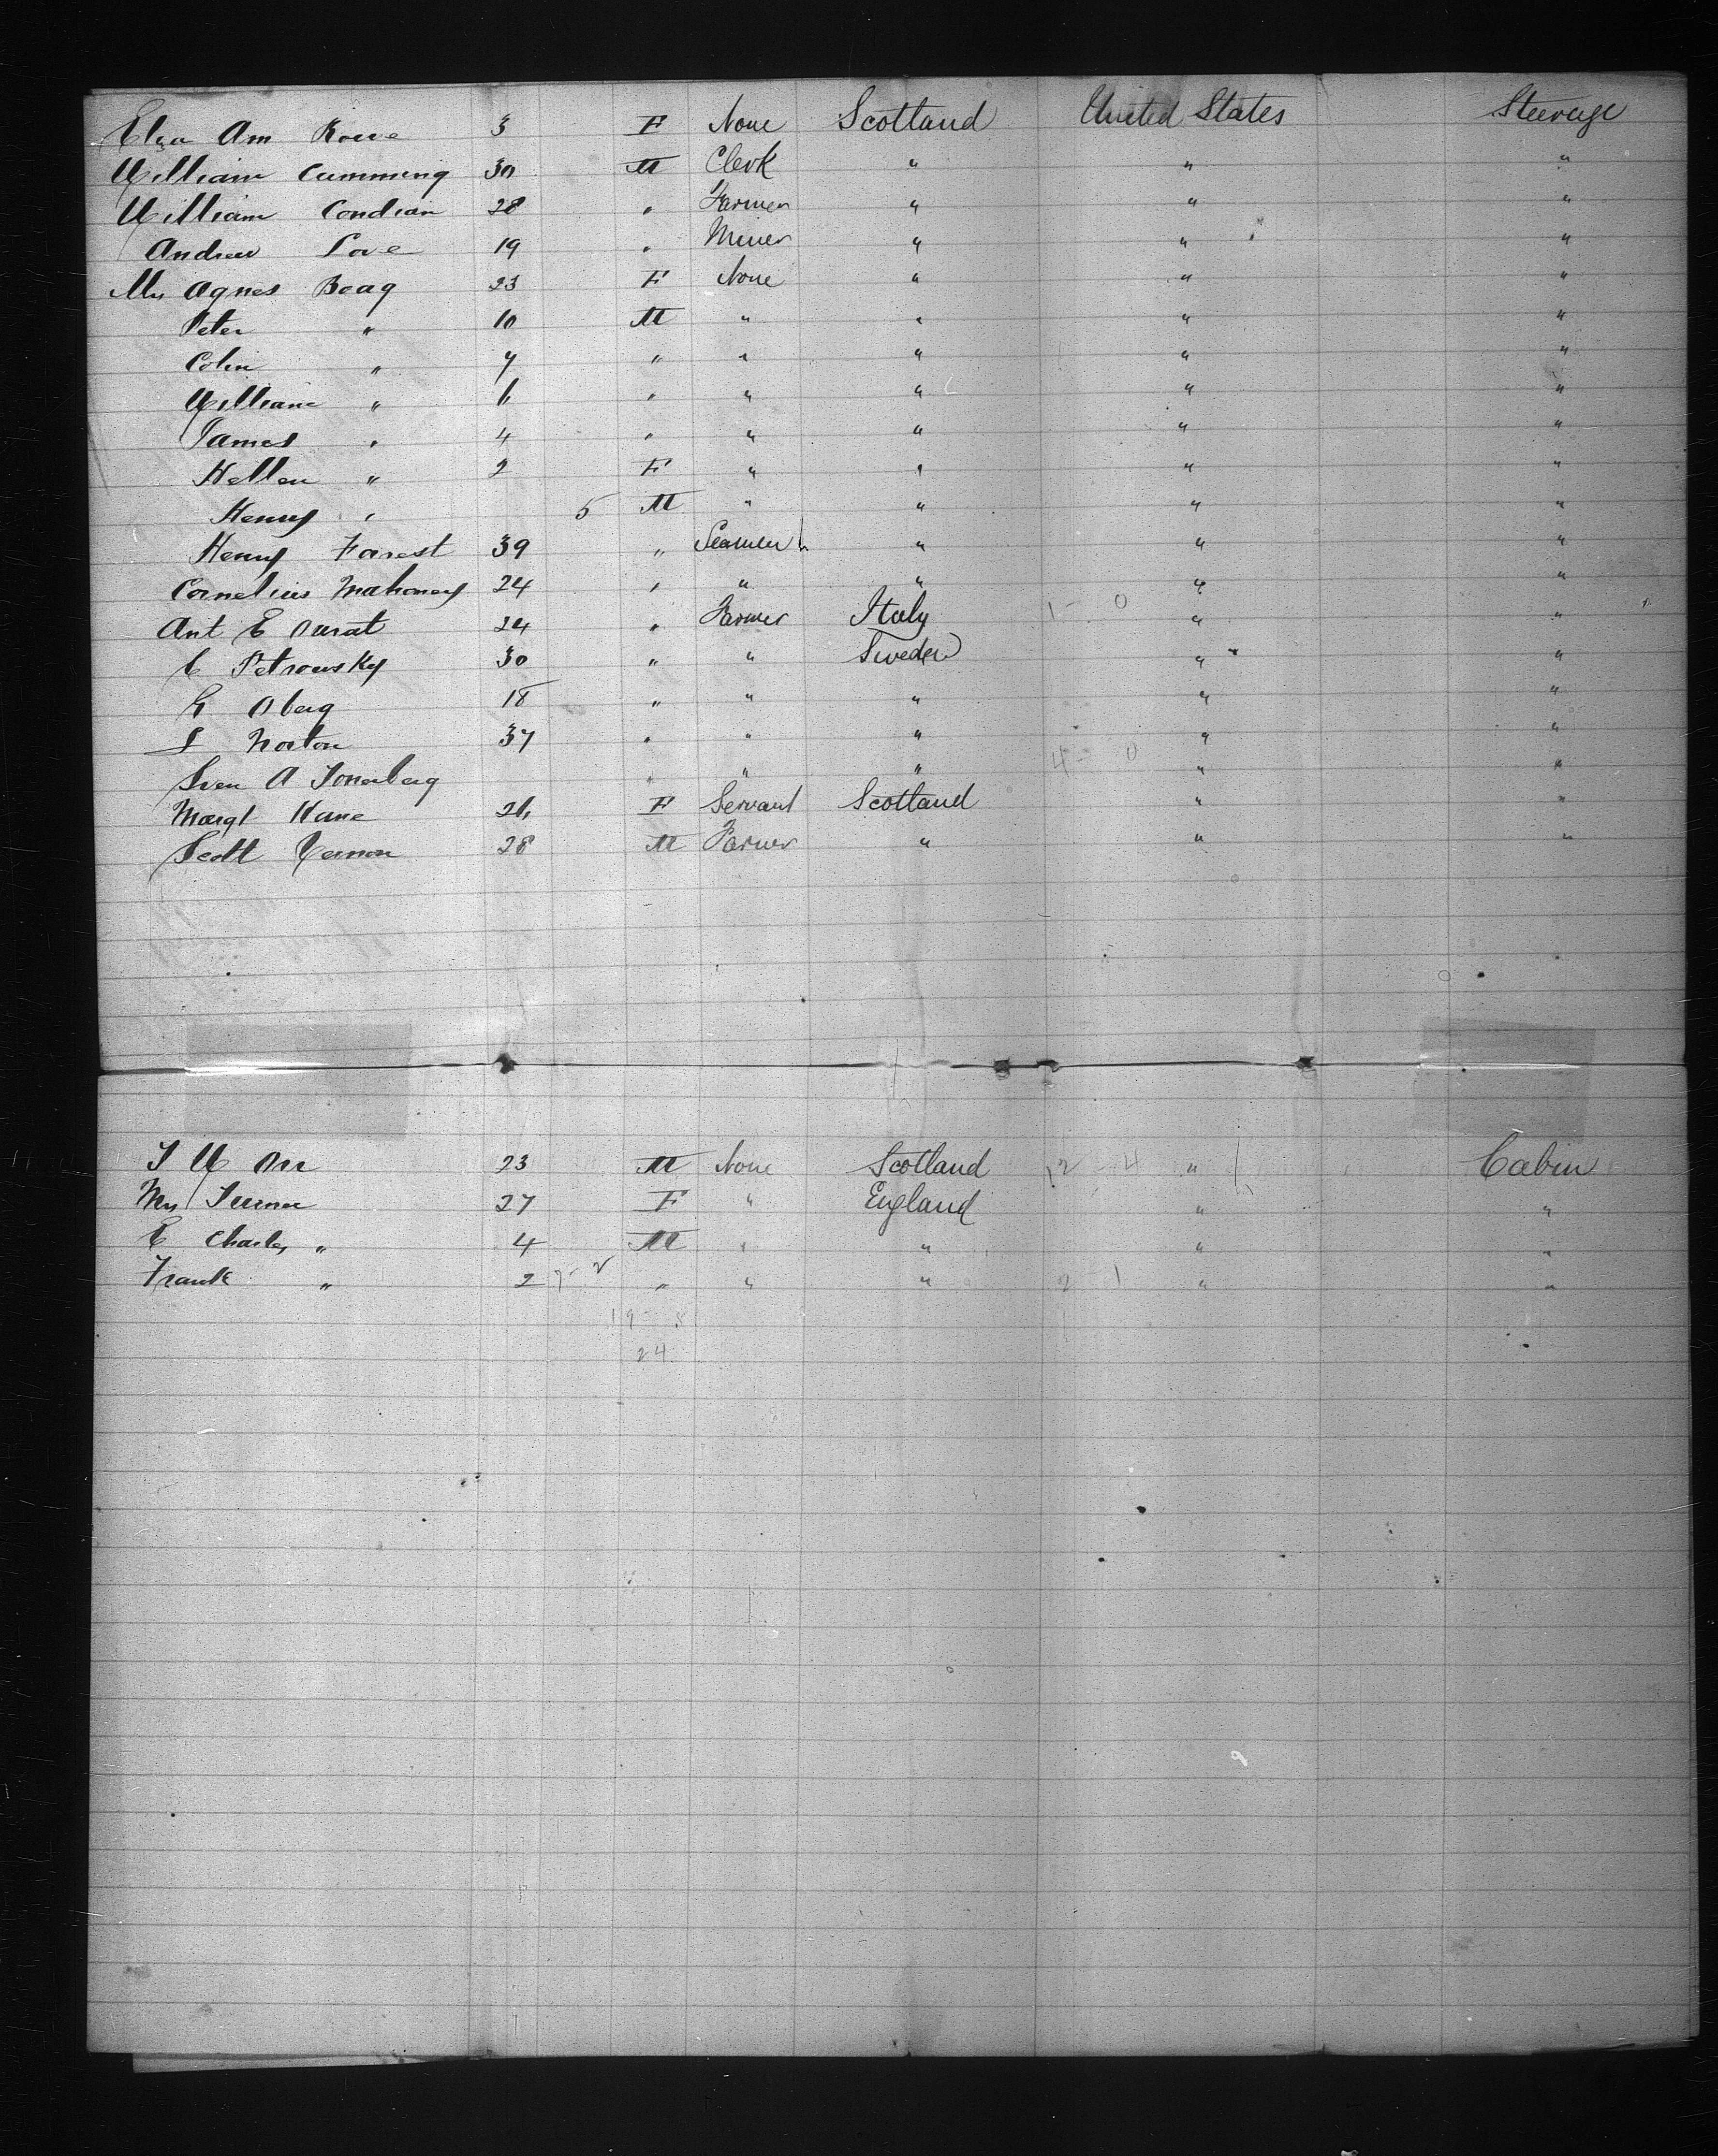 Eliza Ann Rowe 3 F None Scotland United States Steerage
William Cumming 30 M Clerk " " "
William Condian 28 " Farmer " " "
Andrew Love 19 " Miner " " "
Mrs Agnes Boag 23 F None " " "
Peter " 10 M " " " "
Colin " 7 " " " " "
William " 6 " " " " "
James " 4 " " " " "
Hellen " 2 F " " " "
Henry " 5 M " " " "
Henry Forrest 39 " Seamen " " "
Cornelius Mahoney 24 " " " " "
Ant E 24 " Farmer Italy 1 - 0 " "
C Petrousky 30 " " Sweden " "
G Oberg 18 " " " " "
Norton 37 " " " " "
Sven A " " " 4 - 0 " "
Margt Kane 26 F Servant Scotland " "
Scott Vernon 28 M Farmer " " "
J W Orr 23 M None Scotland 12 - 4 " Cabin
Mrs 27 F " England " "
E Charles " 4 M " " " "
Frank " 2 7 - 2 " " " 2 1 " "
19 - 5
24